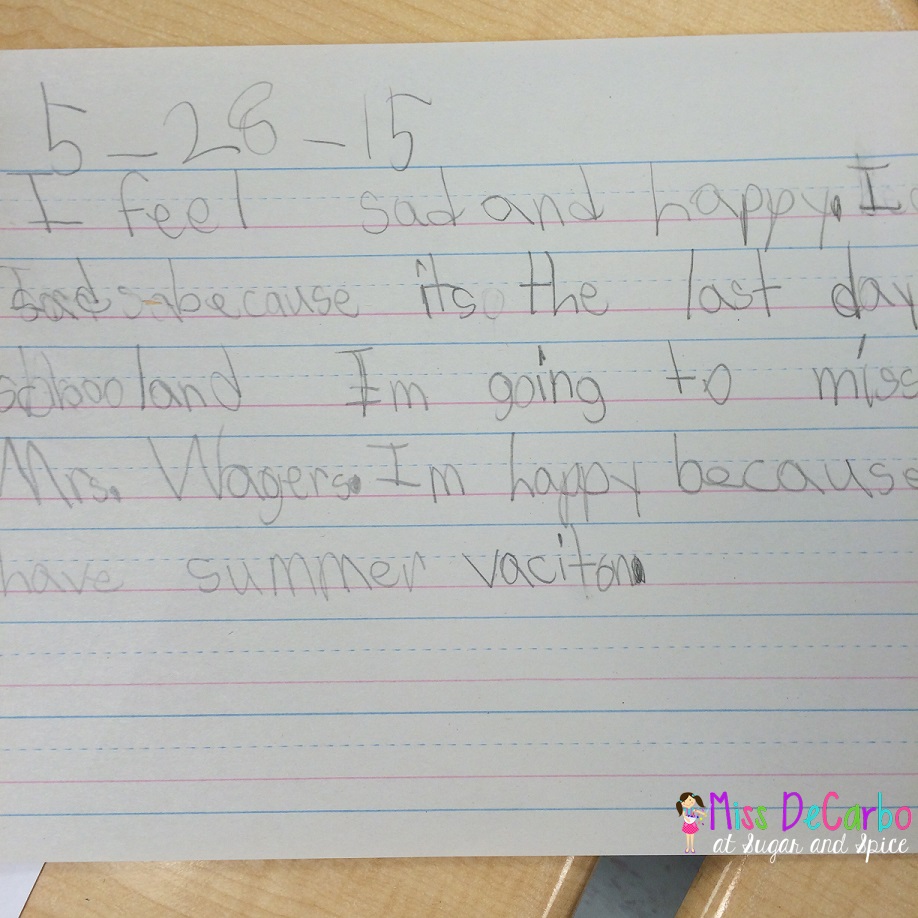 5-28-15
I feel sad and happy. I
sad because its the last day
schooland Im going to miss
Mrs. Wagers. Im happy because
have summer vaciton.
Miss DeCarbo
at Sugar and Spice